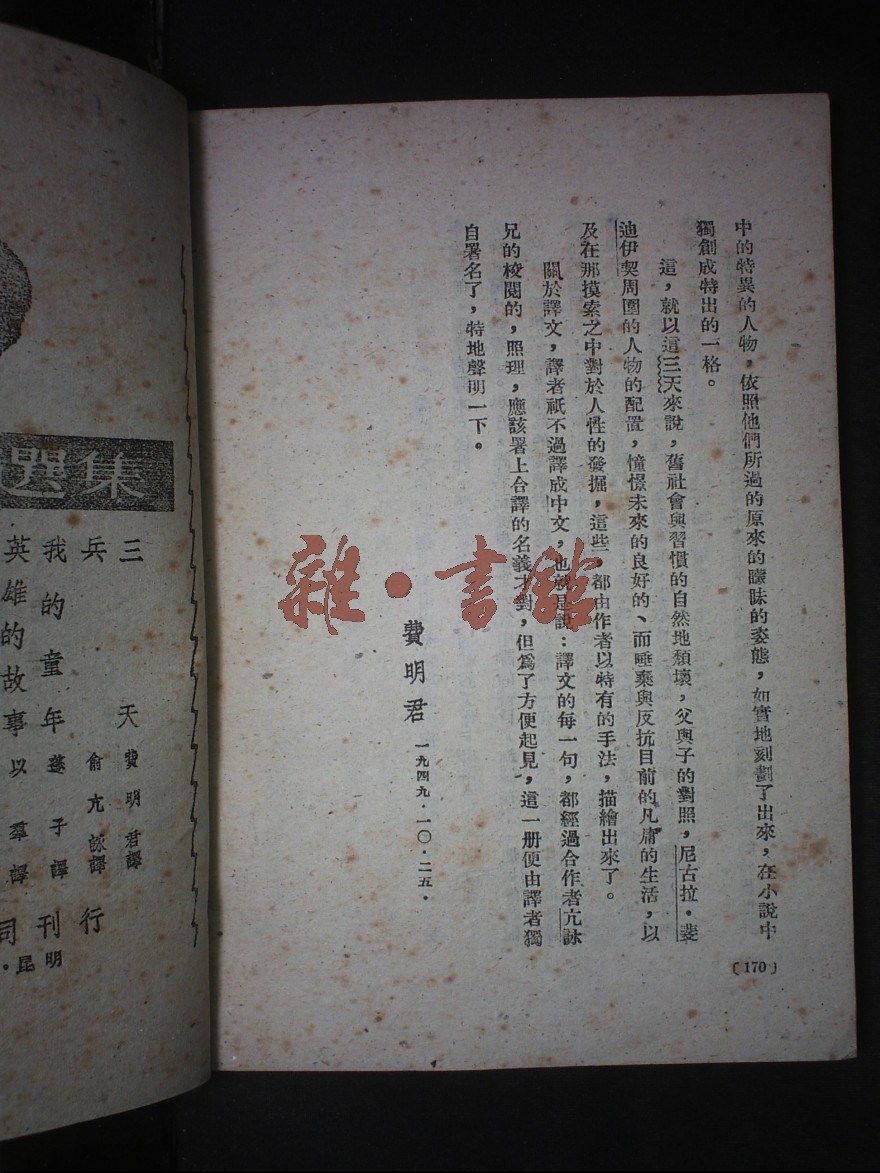 中的特異的人物，依照他們所過的原來的曚昧的姿態，如實地刻劃了出來，在小說中
獨創成特出的一格。
這，就以這三天來說，舊社會與習慣的自然地頹壞，父與子的對照，尼古拉·斐
迪伊契周圍的人物的配置，憧憬未來的良好的、而唾棄與反抗目前的凡庸的生活，以
及在那摸索之中對於人性的發掘，這些，都由作者以特有的手法，描繪出來了。
關於譯文，譯者祇不過譯成中文，也就是說：譯文的每一句，都經過合作者亢詠
兄的校閱的，照理，應該署上合譯的名義才對，但爲了方便起見，這一册便由譯者獨
自署名了，特地聲明一下。
費明君 一九四九·一〇·二五·
〔170〕
雜·書館
選集
三天 費明君譯
兵 俞亢詠譯
我的童年 蓬子譯
英雄的故事 以羣譯
行
刊
司
明
昆。